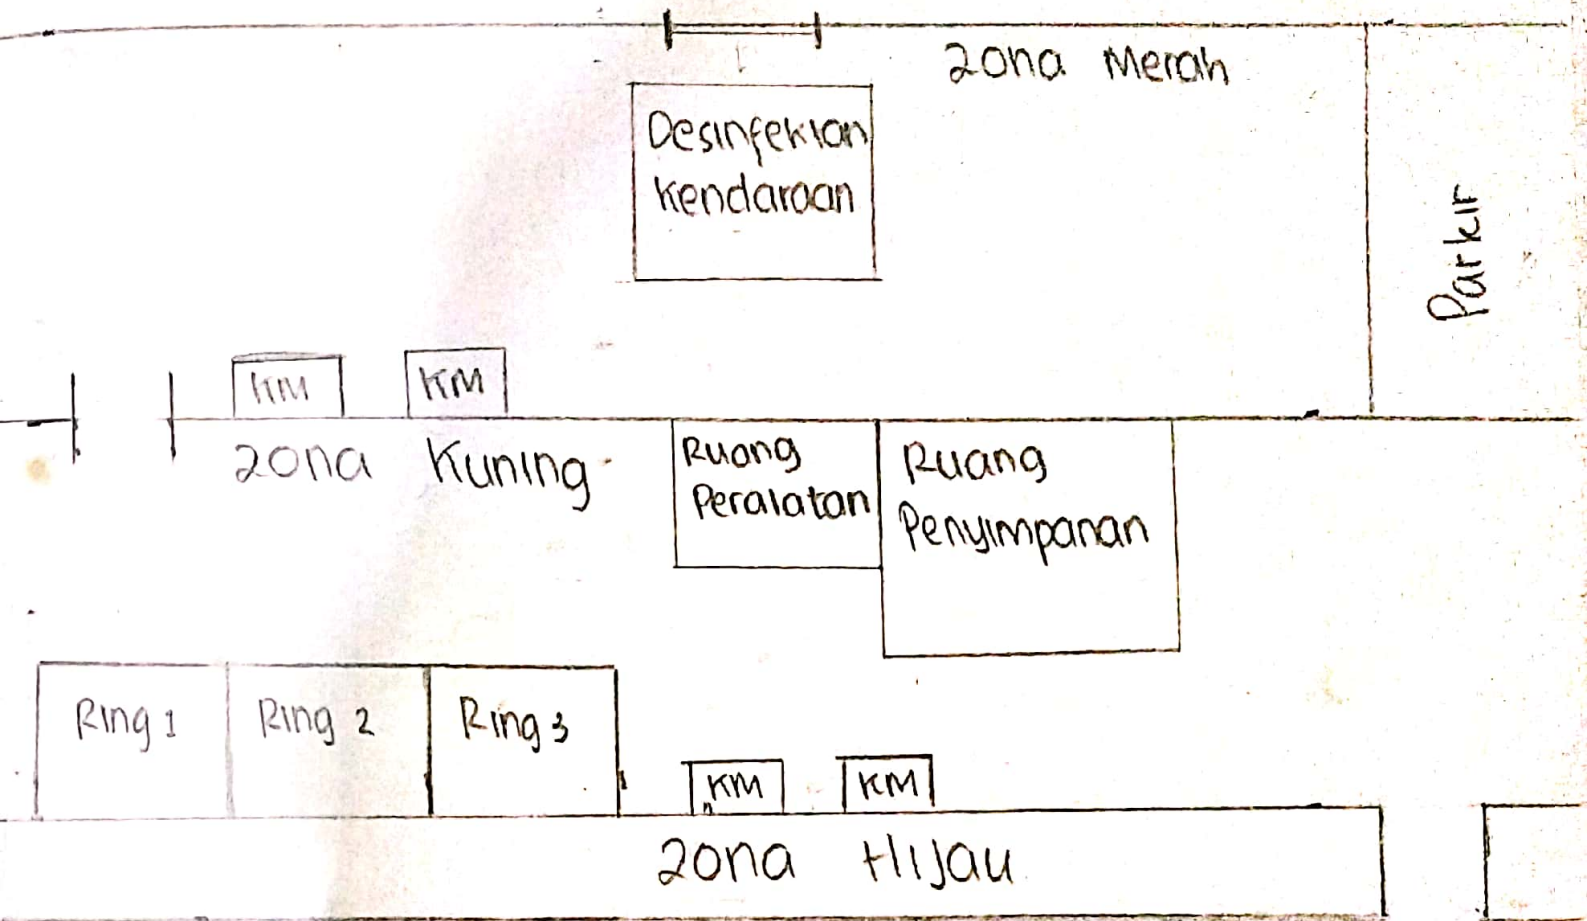 Zona Merah
Desinfeksan
Kendaraan
Parkir
KM
KM
Zona Kuning
Ruang
Peralatan
Ruang
Penyimpanan
Ring 1
Ring 2
Ring 3
KM
KM
Zona Hijau